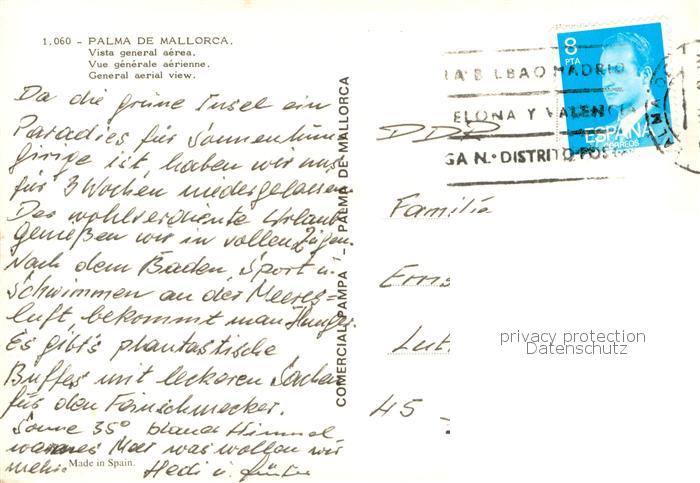 1.060 - PALMA DE MALLORCA.
Vista general aérea.
Vue générale aérienne.
General aerial view.
Da die grüne Insel ein
Paradies für Sonnenhung
girige ist, haben wir uns
für 3 Wochen niedergelassen.
Den wohlverdiente Urlaub
genießen wir in vollen Zügen.
Nach dem Baden, Sport u.
Schwimmen an der Meeres=
luft, bekommt man Hunger.
Es gibt's phantastische
Buffes mit leckeren Sachen
für den Feinschmecker.
Sonne 35° blauer Himmel
warmes Meer was wollen wir
mehr. Hedi u. Günter
Made in Spain.
COMERCIAL PAMPA - PALMA DE MALLORCA
8
PTA
ESPAÑA
CORREOS
BILBAO MADRID
ELONA Y VALENCIA
GA N.º DISTRITO POS
DDR
Familia
Erns
Lut
45
privacy protection
Datenschutz